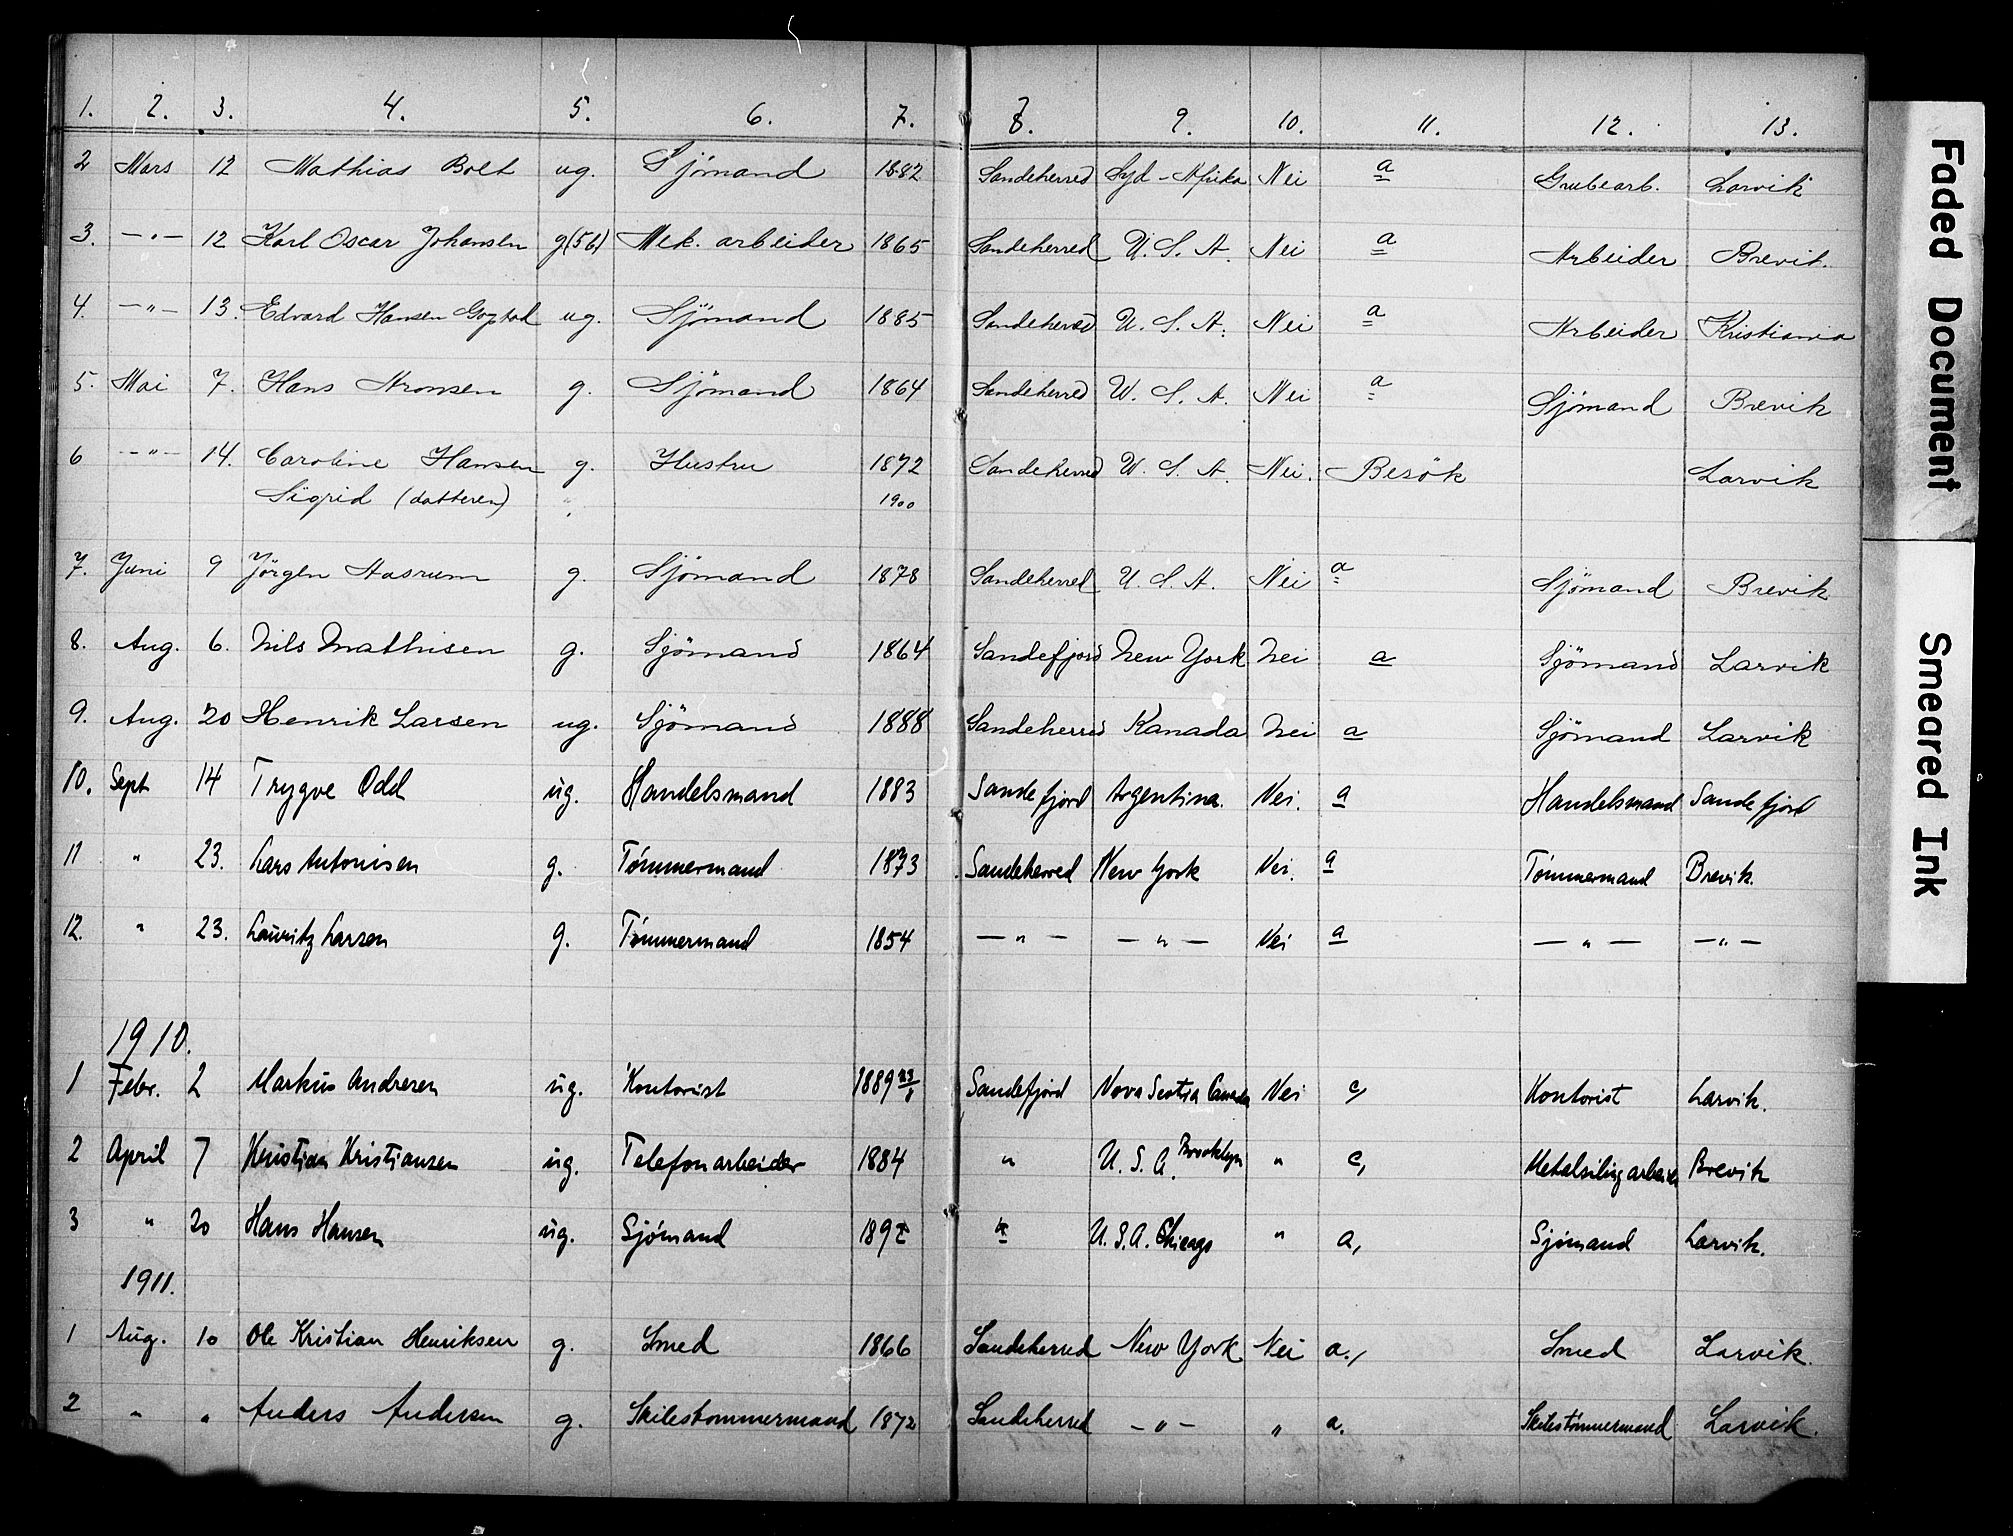 1. 2. 3. 4. 5. 6. 7. 8. 9. 10. 11. 12. 13.
2 Mars 12 Mathias Bolt ug. Sjömand 1882 Sandeherred Syd-Afrika Nei a Grubearb. Larvik
3. -"- 12 Karl Oscar Johansen g(56) Mek. arbeider 1865 Sandeherred U. S. A. Nei a Arbeider Brevik.
4. -"- 13. Edvard Hansen ug. Sjömand 1885 Sandeherred U. S. A. Nei a Arbeider Kristiania
5. Mai 7. Hans Aronsen g. Sjömand 1864 Sandeherred U. S. A. Nei a Sjömand Brevik
6 -"- 14. Caroline Hansen g. Hustru 1872 Sandeherred U. S. A. Nei. Besök Larvik
Sigrid (datteren) " 1900
7. Juni 9 Jörgen Aasrum g. Sjömand 1878 Sandeherred U. S. A. Nei a Sjömand Brevik
8. Aug. 6. Nils Mathisen g. Sjömand 1864 Sandefjord New York Nei a Sjömand Larvik
9. Aug. 20 Henrik Larsen ug. Sjömand 1888 Sandeherred Kanada Nei a Sjömand Larvik
10. Sept 14 Trygve Odd ug. Handelsmand 1883 Sandefjord Argentina. Nei. a Handelsmand Sandefjord
11 " 23. Lars Antonisen g. Tömmermand 1873 Sandeherred New York Nei. a Tömmermand Brevik.
12. " 23. Lauritz Larsen g. Tömmermand 1854 -"- -"- Nei a -"- -"-
1910.
1 Febr. 2 Markus Andresen ug. Kontorist 1889 23/1 Sandefjord Nova Scotia Canada Nei c, Kontorist Larvik.
2 April 7 Kristian Kristiansen ug. Telefonarbeider 1884 " U. S. A. Brooklyn " c, Brevik
3 " 20 Hans Hansen ug. Sjömand " U. S. A. Chicago " a, Sjömand Larvik.
1911.
1 Aug. 10 Ole Kristian Henriksen g. Smed 1866 Sandeherred New York Nei a., Smed Larvik.
2 " " Anders Andersen g. Skibstømmermand 1872 Sandeherred -"- " a. Skibstømmermand Larvik.
Faded Document
Smeared Ink